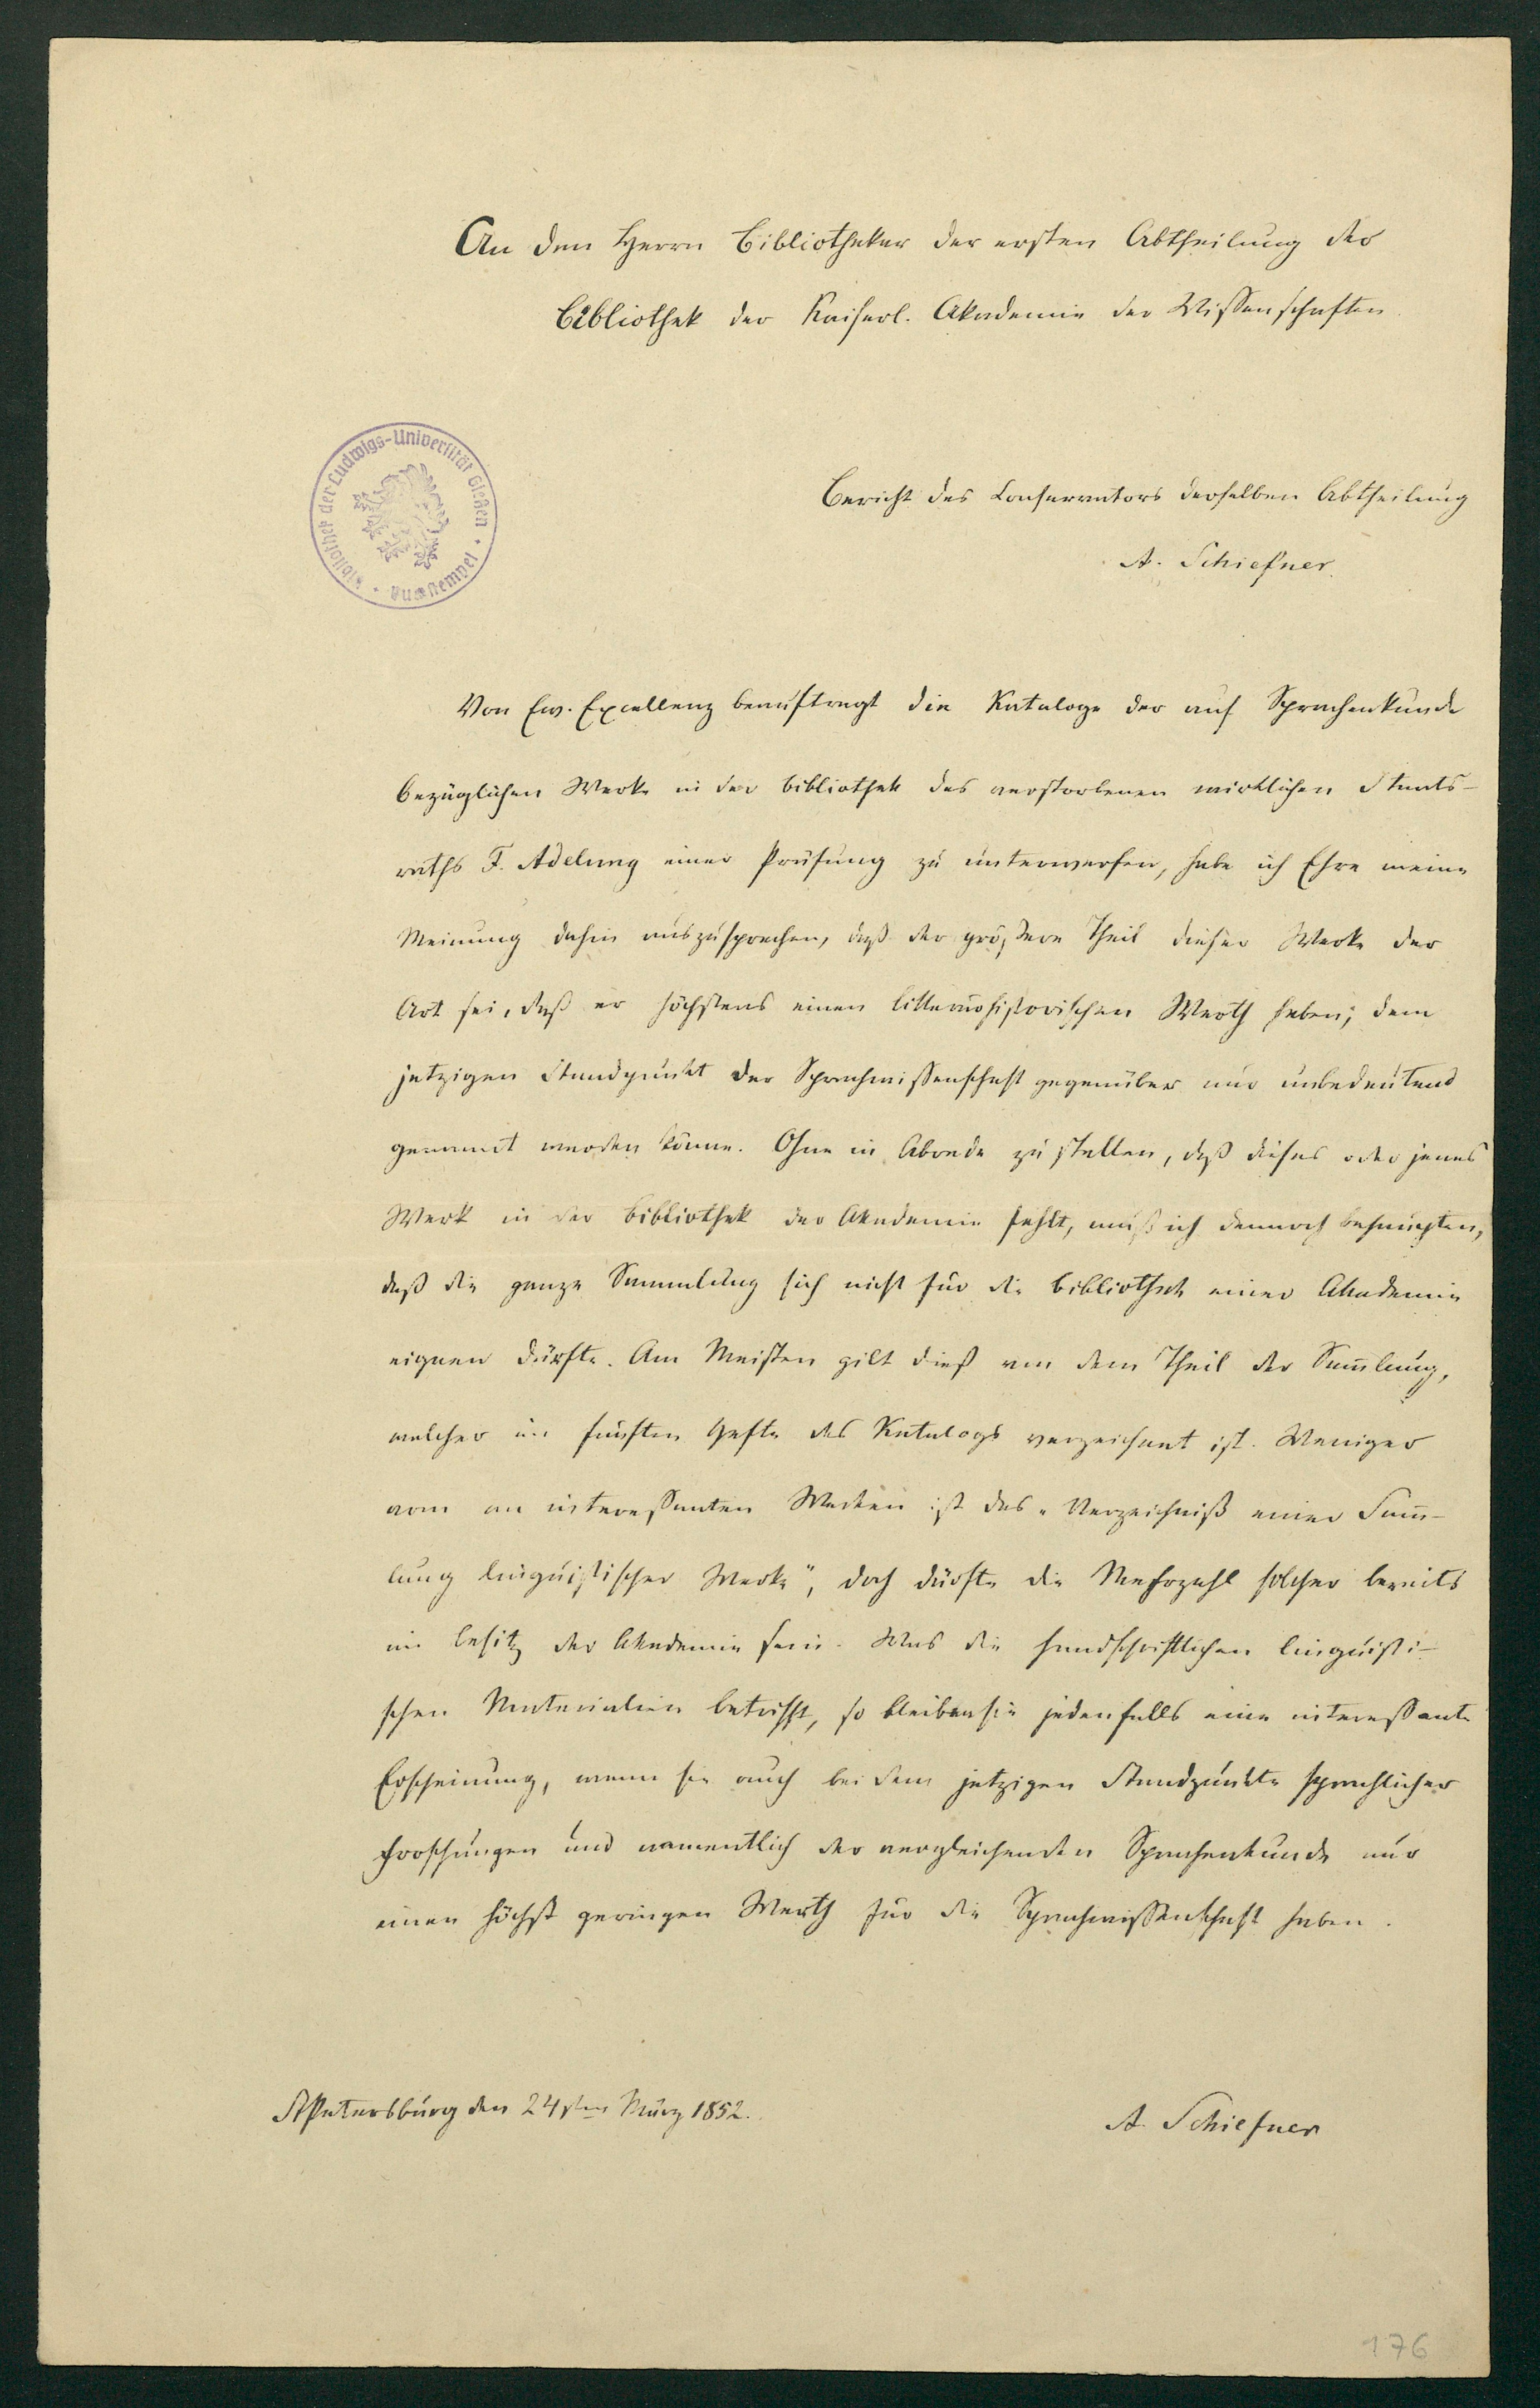 An den Herrn Bibliothekar der ersten Abtheilung der
Bibliothek der Kaiserl. Akademie der Wissenschaften
Bibliothek der Ludwigs-Universität Gießen
Bericht des Conservators derselben Abtheilung
A. Schiefner.
Von Ew. Excellenz beauftragt die Kataloge der auf Sprachenkunde
bezüglichen Werke in der Bibliothek des verstorbenen wirklichen Staats-
raths F. Adelung einer Prüfung zu unterwerfen, habe ich Ehre meine
Meinung dahin auszusprechen, daß der größere Theil dieser Werke der
Art sei, daß er höchstens einen litterärhistorischen Werth haben, dem
jetzigen Standpunkt der Sprachwissenschaft gegenüber nur unbedeutend
genannt werden könne. Ohne in Abrede zu stellen, daß dieses oder jenes
Werk in der Bibliothek der Akademie fehlt, muß ich dennoch behaupten,
daß die ganze Sammlung sich nicht für die Bibliothek einer Akademie
eignen dürfte. Am Meisten gilt dieß von dem Theil der Sam̄lung,
welcher im fünften Hefte des Katalogs verzeichnet ist. Weniger
arm an interessanten Werken ist das „Verzeichniß einer Sam̄-
lung linguistischer Werke", doch dürfte die Mehrzahl solcher bereits
im Besitz der Akademie sein. Was die handschriftlichen linguisti-
schen Materialien betrifft, so bleiben sie jedenfalls eine interessante
Erscheinung, wenn sie auch bei dem jetzigen Standpunkte sprachlicher
Forschungen und namentlich der vergleichenden Sprachenkunde nur
einen höchst geringen Werth für die Sprachwissenschaft haben.
St Petersburg den 24sten März 1852.
A. Schiefner
176